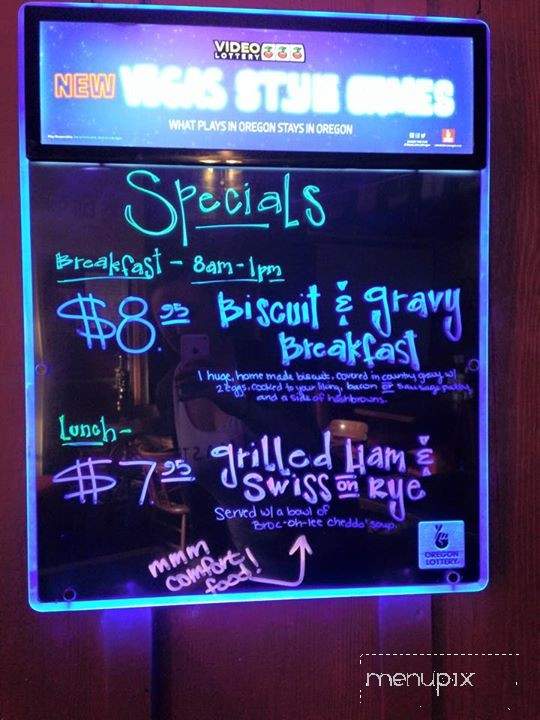 VIDEO
LOTTERY
NEW VEGAS STYLE GAMES
WHAT PLAYS IN OREGON STAYS IN OREGON
Specials
Breakfast - 8am-1pm
$8.95 Biscuit & gravy
Breakfast
1 huge, home made biscuit, covered in country gravy w/
2 eggs, cooked to your liking, bacon or sausage patty
and a side of hashbrowns
Lunch -
$7.95 grilled Ham &
Swiss on Rye
Served w/ a bowl of
Broc-oh-lee chedda' soup.
mmm
comfort
food!
OREGON
LOTTERY
menupix